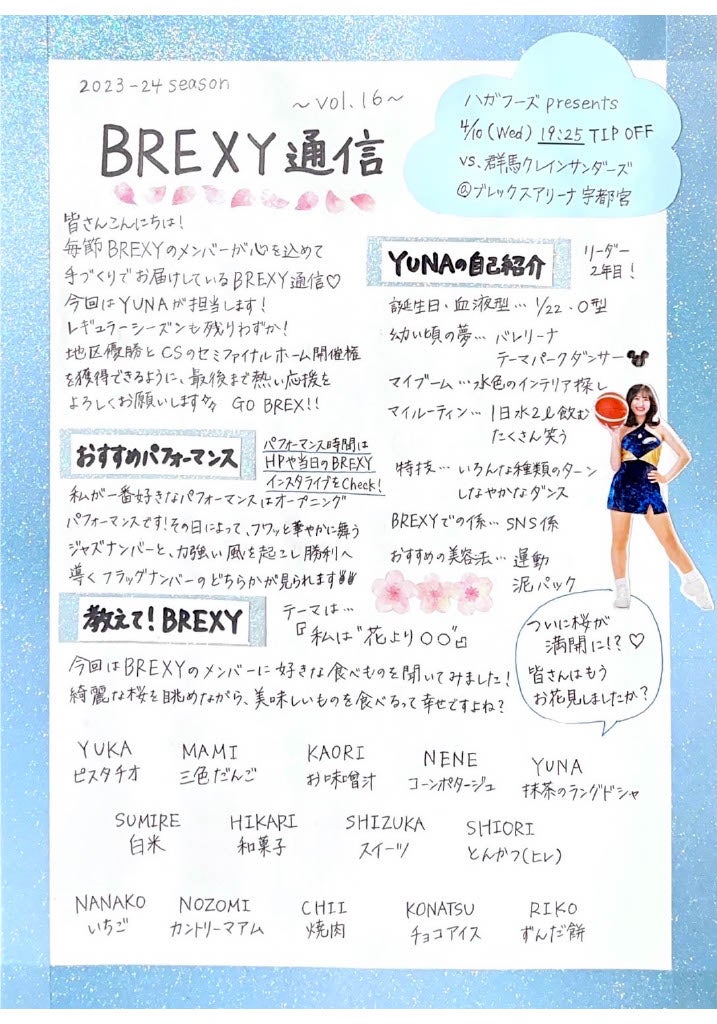 2023-24 season
～vol.16～
BREXY通信
ハガフーズ presents
4/10(Wed) 19:25 TIP OFF
vs.群馬クレインサンダーズ
@ブレックスアリーナ宇都宮
皆さんこんにちは!
毎節BREXYのメンバーが心を込めて
手づくりでお届けしているBREXY通信♡
今回はYUNAが担当します!
レギュラーシーズンも残りわずか!
地区優勝とCSのセミファイナルホーム開催権
を獲得できるように、最後まで熱い応援を
よろしくお願いします GO BREX!!
おすすめパフォーマンス
パフォーマンス時間は
HPや当日のBREXY
インスタライブをCheck!
私が一番好きなパフォーマンスはオープニング
パフォーマンスです!その日によって、フワッと華やかに舞う
ジャズナンバーと、力強い風を起こし勝利へ
導くフラッグナンバーのどちらかが見られます
YUNAの自己紹介
リーダー
2年目!
誕生日・血液型…1/22・O型
幼い頃の夢…バレリーナ
テーマパークダンサー
マイブーム…水色のインテリア探し
マイルーティン…1日水2ℓ飲む
たくさん笑う
特技…いろんな種類のターン
しなやかなダンス
BREXYでの係…SNS係
おすすめの美容法…運動
泥パック
教えて!BREXY
テーマは…
『私は"花より○○"』
今回はBREXYのメンバーに好きな食べものを聞いてみました!
綺麗な桜を眺めながら、美味しいものを食べるって幸せですよね?
ついに桜が
満開に!?♡
皆さんはもう
お花見しましたか?
YUKA MAMI KAORI NENE YUNA
ピスタチオ 三色だんご お味噌汁 コーンポタージュ 抹茶のラングドシャ
SUMIRE HIKARI SHIZUKA SHIORI
白米 和菓子 スイーツ とんかつ(ヒレ)
NANAKO NOZOMI CHII KONATSU RIKO
いちご カントリーマアム 焼肉 チョコアイス ずんだ餅